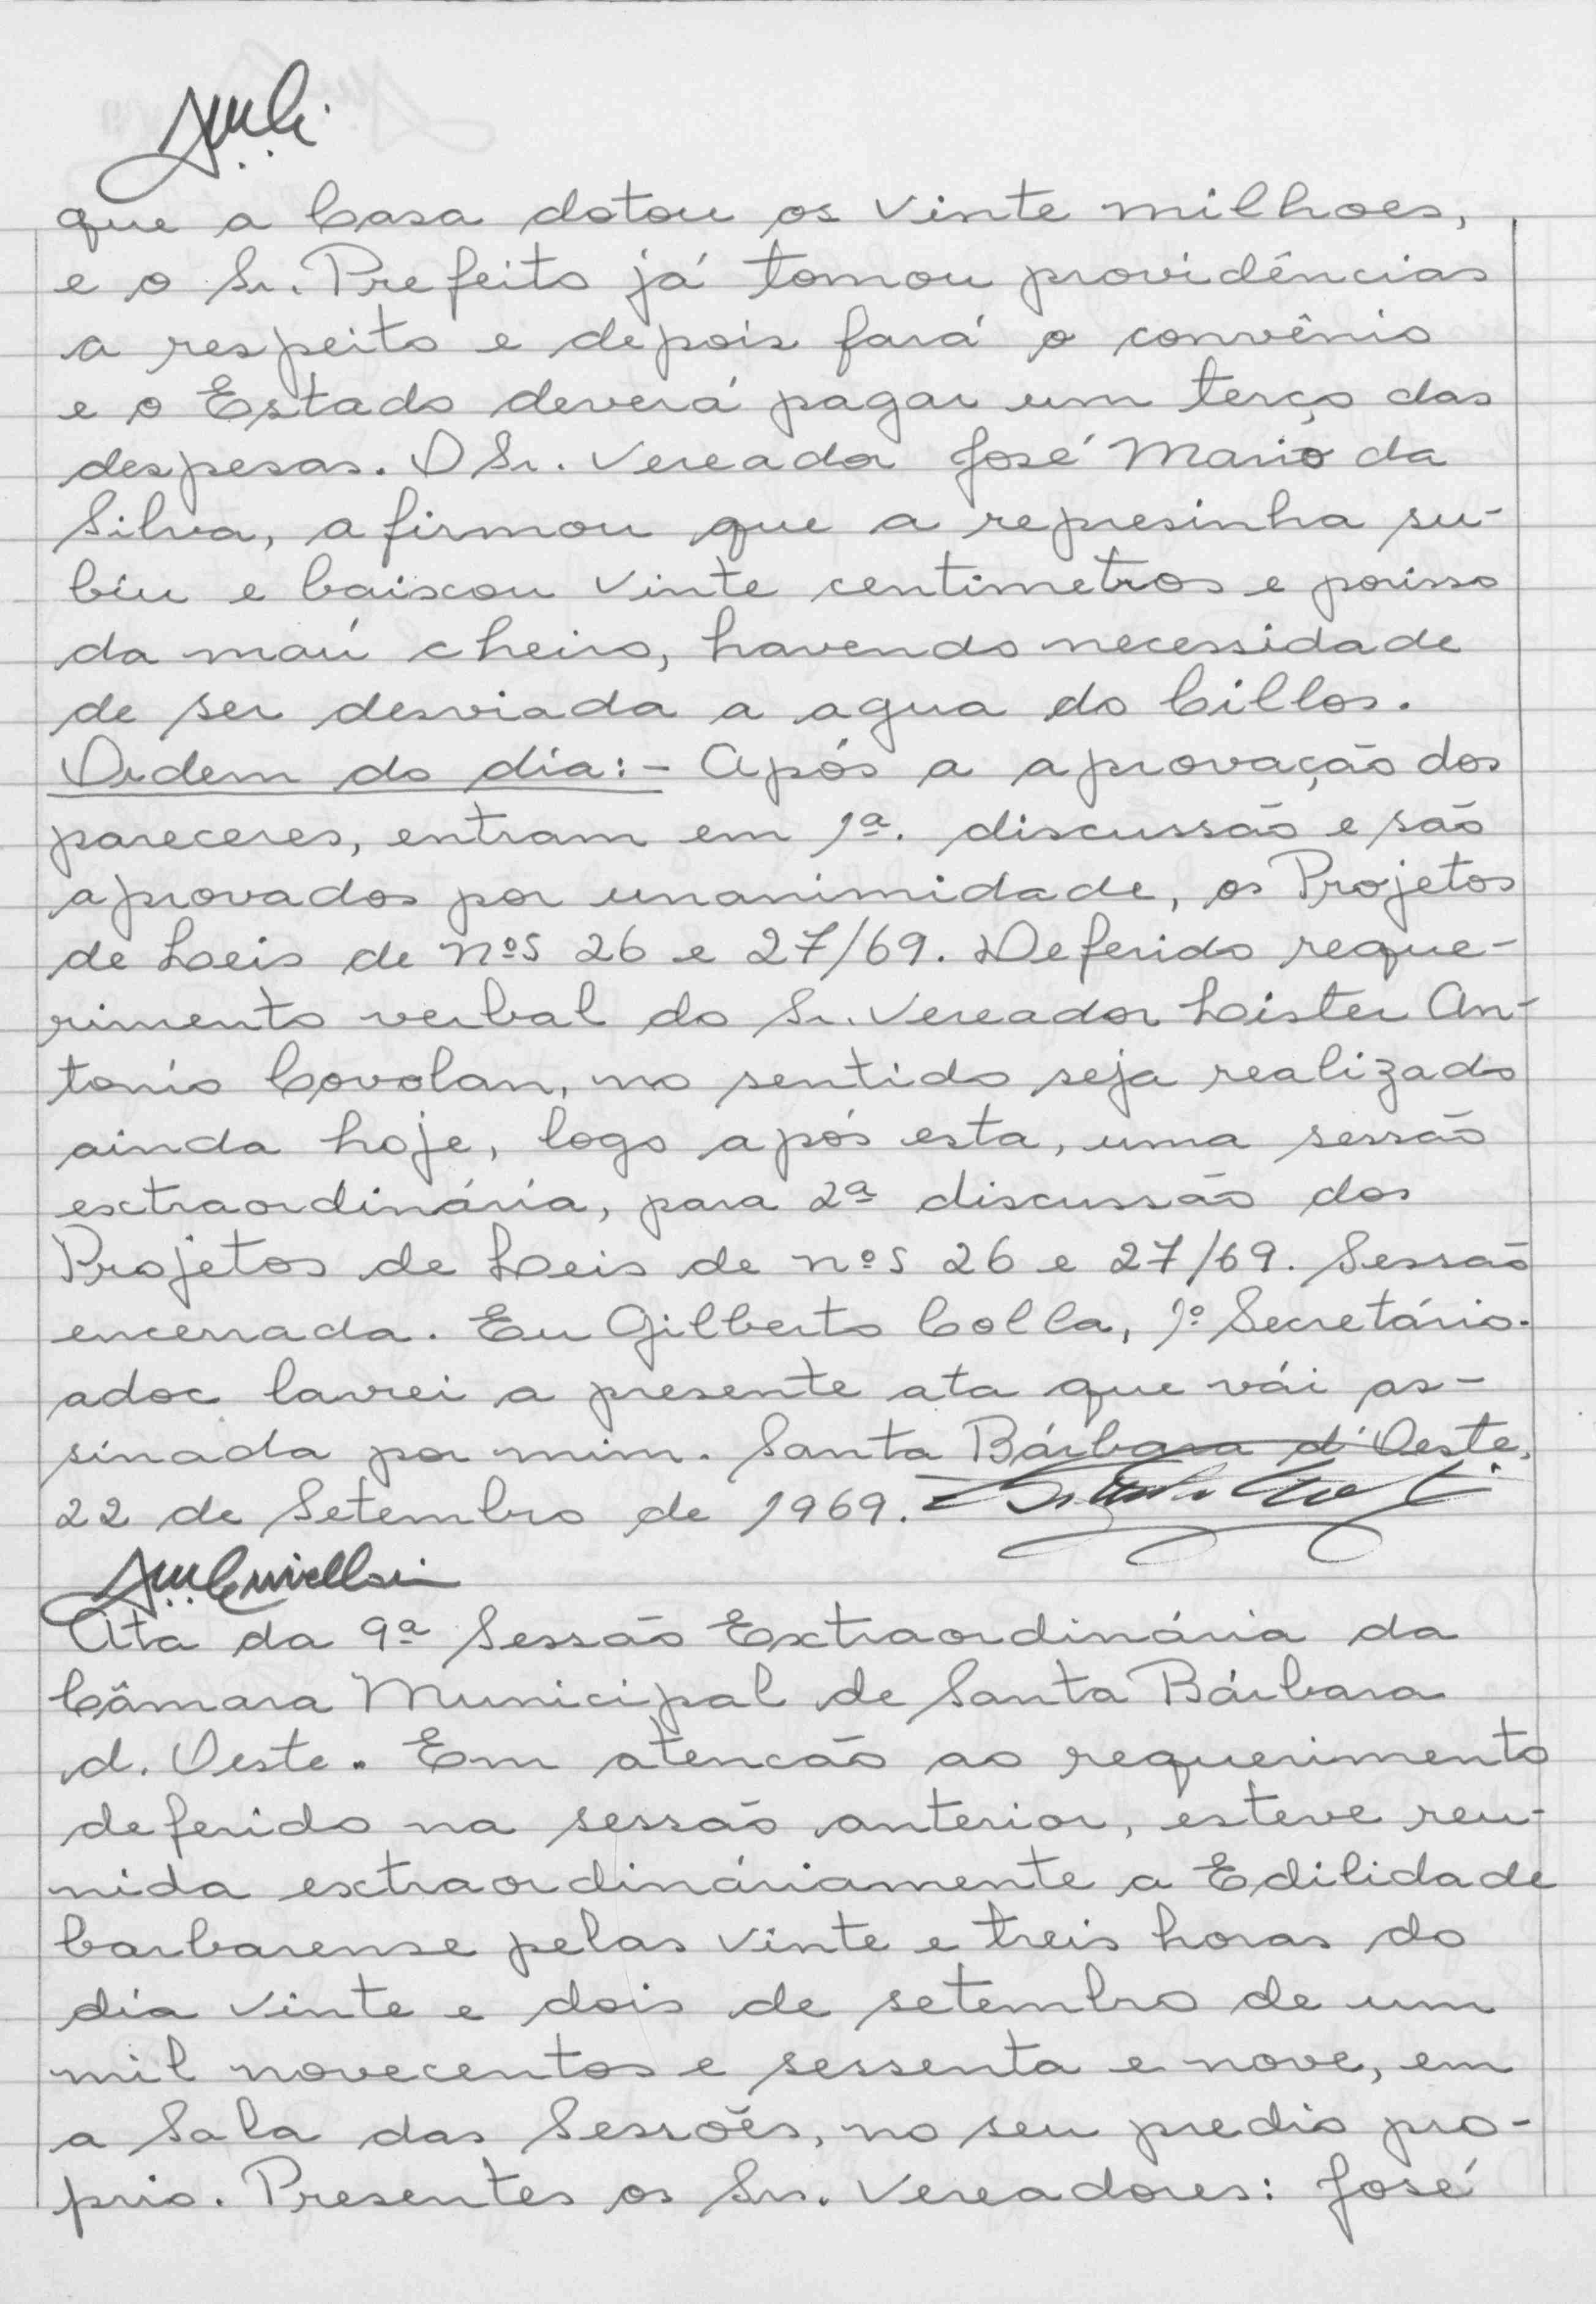 que a Casa dotou os vinte milhoes,
e o Sr. Prefeito já tomou providências
a respeito e depois fará o convênio
e o Estado deverá pagar um terço das
despesas. O Sr. Vereador José Mario da
Silva, afirmou que a represinha su-
biu e baixou vinte centimetros e porisso
da maú cheiro, havendo necessidade
de ser desviada a agua do Cillos.
Ordem do dia:- Após a aprovação dos
pareceres, entram em 1ª. discussão e são
aprovados por unanimidade, os Projetos
de Leis de nºs 26 e 27/69. Deferido reque-
rimento verbal do Sr. Vereador Lister An-
tonio Covolan, no sentido seja realizado
ainda hoje, logo após esta, uma sessão
extraordinária, para 2ª discussão dos
Projetos de Leis de nºs 26 e 27/69. Sessão
encerrada. Eu Gilberto Colla, 1º Secretário.
adoc lavrei a presente ata que vái as-
sinada por mim. Santa Bárbara d'Oeste,
22 de Setembro de 1969.
Ata da 9ª Sessão Extraordinária da
Câmara Municipal de Santa Bárbara
d. Oeste. Em atencão ao requerimento
deferido na sessão anterior, esteve reu-
nida extraordináriamente a Edilidade
barbarense pelas vinte e treis horas do
dia vinte e dois de setembro de um
mil novecentos e sessenta e nove, em
a Sala das Sessões, no seu predio pro-
prio. Presentes os Srs. Vereadores: José